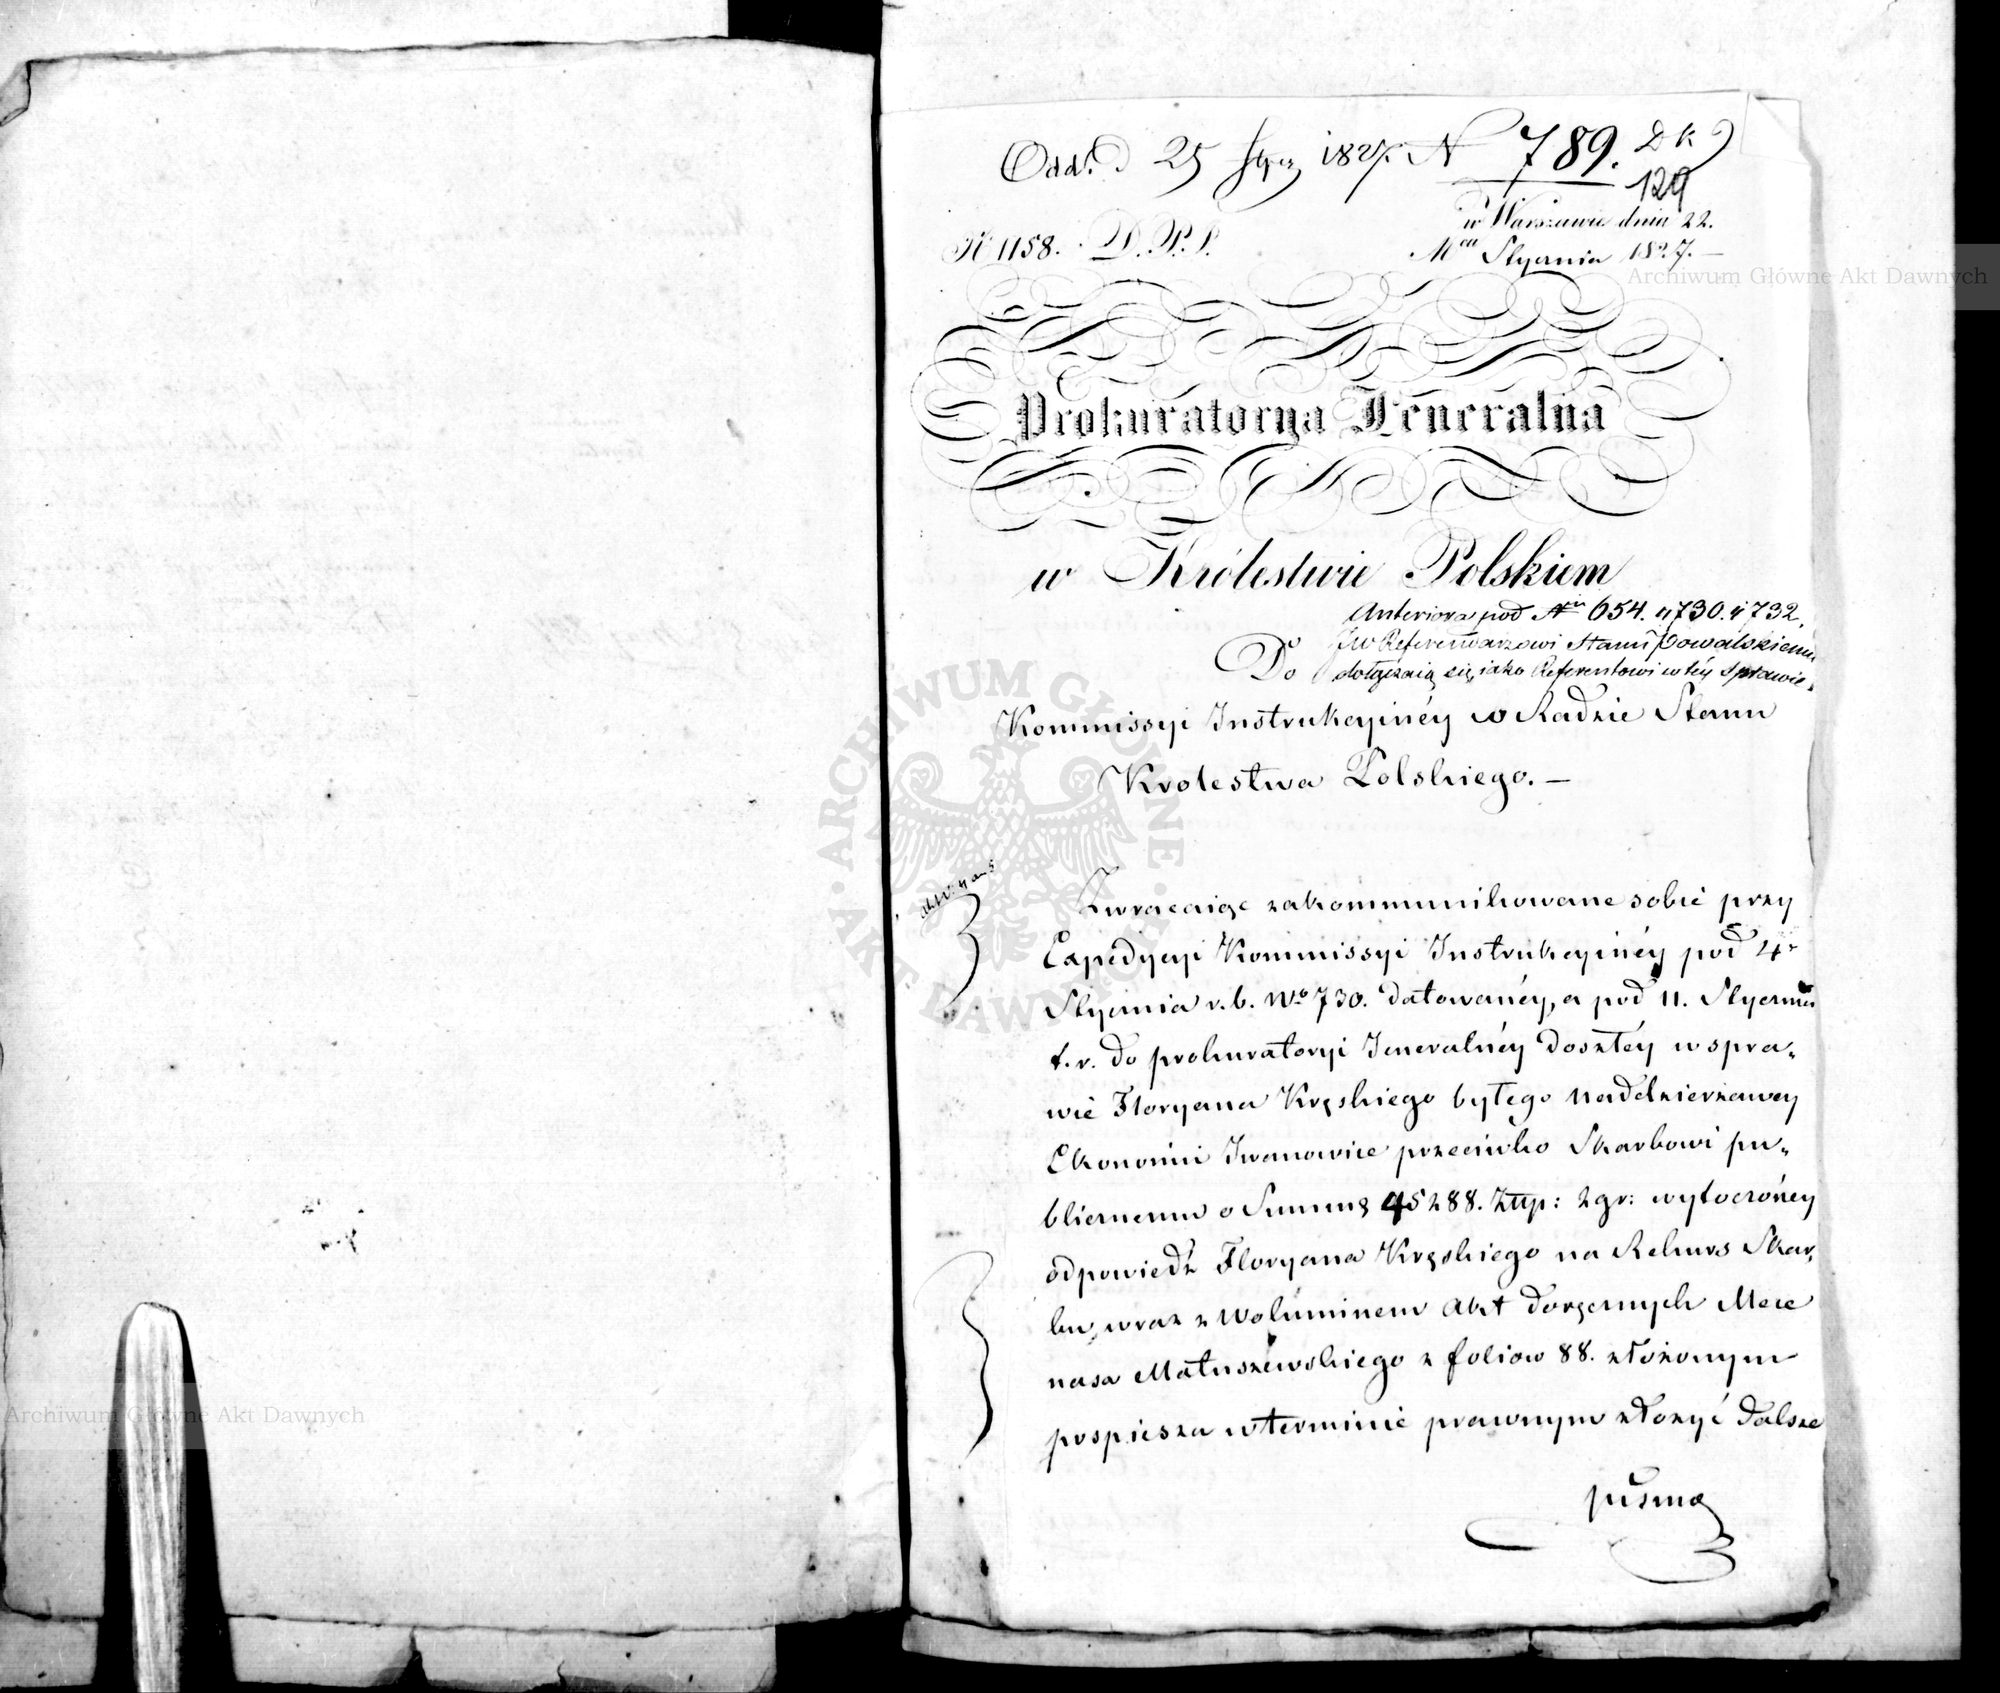 Odd. d 25 Stycz 1827. N 789. DK
129
N 1158. D.P.S.
w Warszawie dnia 22.
Mca Stycznia 1827. —
Archiwum Główne Akt Dawnych
Prokuratorya Jeneralna
w Królestwie Polskiem
Anteriora pod Nrin 654. 730. i 732.
JW Referendarzowi Stanu Kowalskiemu
dołączaią się, iako Referentowi w téy Sprawie.
Do
Kommissyi Instrukcyinéy w Radzie Stanu
Krolestwa Polskiego. —
Zwracaiąc zakommunikowane sobie przy
Expedycyi Kommissyi Instrukcyinéy pod 4
Stycznia r. b. No 730. datowanéy, a pod 11. Stycznia
t. r. do prokuratoryi Jeneralnéy doszłéy w spra„
wie Floryana Kręskiego byłego Naddzierzawcy
Ekonomii Iwanowice przeciwko Skarbowi pu„
blicznemu o Summę 45288. Złłp: 2 gr: wytoczonéy
odpowiedź Floryana Kręskiego na Rekurs Skar„
bu, wraz z Woluminem Akt doręcznych Mece
nasa Matuszewskiego z foliow 88. złożonym
pospiesza w terminie prawnym złożyć dalsze
pisma
ARCHIWUM GŁÓWNE AKT DAWNYCH
Archiwum Główne Akt Dawnych